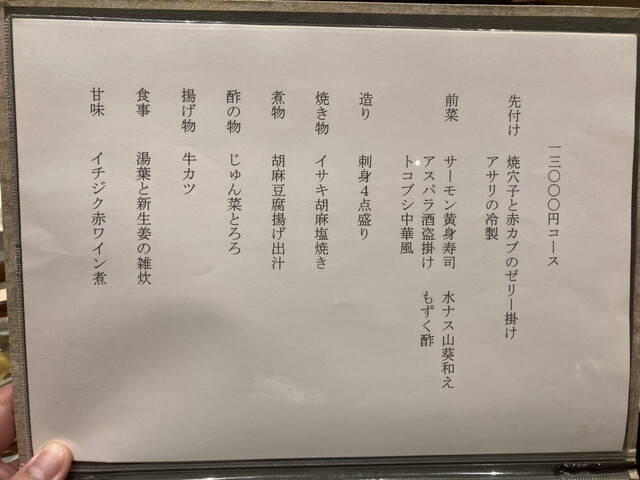 一三〇〇〇円コース
先付け 焼穴子と赤カブのゼリー掛け
アサリの冷製
前菜 サーモン黄身寿司 水ナス山葵和え
アスパラ酒盗掛け もずく酢
トコブシ中華風
造り 刺身４点盛り
焼き物 イサキ胡麻塩焼き
煮物 胡麻豆腐揚げ出汁
酢の物 じゅん菜とろろ
揚げ物 牛カツ
食事 湯葉と新生姜の雑炊
甘味 イチジク赤ワイン煮